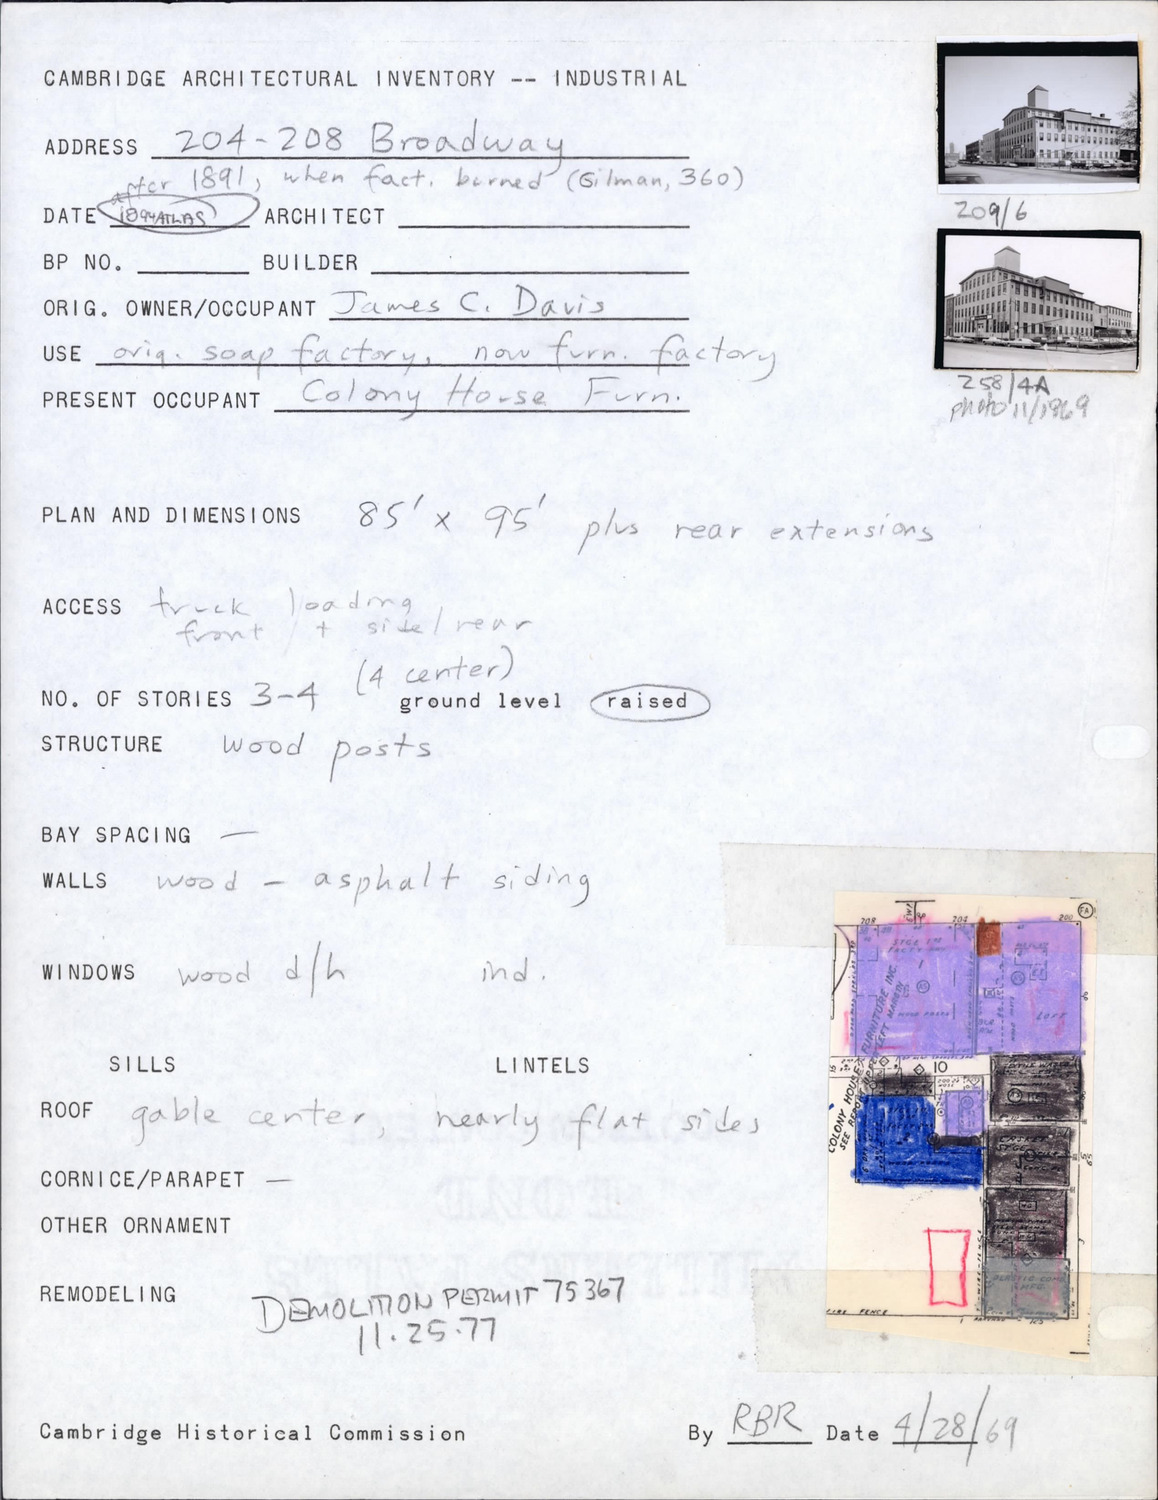 CAMBRIDGE ARCHITECTURAL INVENTORY -- INDUSTRIAL
ADDRESS 204-208 Broadway
after 1891, when fact. burned (Gilman, 360)
DATE 1894 ATLAS ARCHITECT
BP NO. BUILDER
ORIG. OWNER/OCCUPANT James C. Davis
USE orig. soap factory, now furn. factory
PRESENT OCCUPANT Colony House Furn.
209/6
258/4A
photo 11/1969
PLAN AND DIMENSIONS 85' x 95' plus rear extensions
ACCESS truck loading
front + side/rear
(4 center)
NO. OF STORIES 3-4 ground level raised
STRUCTURE wood posts
BAY SPACING —
WALLS wood - asphalt siding
WINDOWS wood d/h ind.
SILLS LINTELS
ROOF gable center, nearly flat sides
CORNICE/PARAPET —
OTHER ORNAMENT
REMODELING DEMOLITION PERMIT 75367
11.25.77
208 204 200 FA
COLONY HOUSE FURNITURE INC.
SEE REPORT UPPER LEFT MARGIN
LOFT
10
FENCE
Cambridge Historical Commission By RBR Date 4/28/69